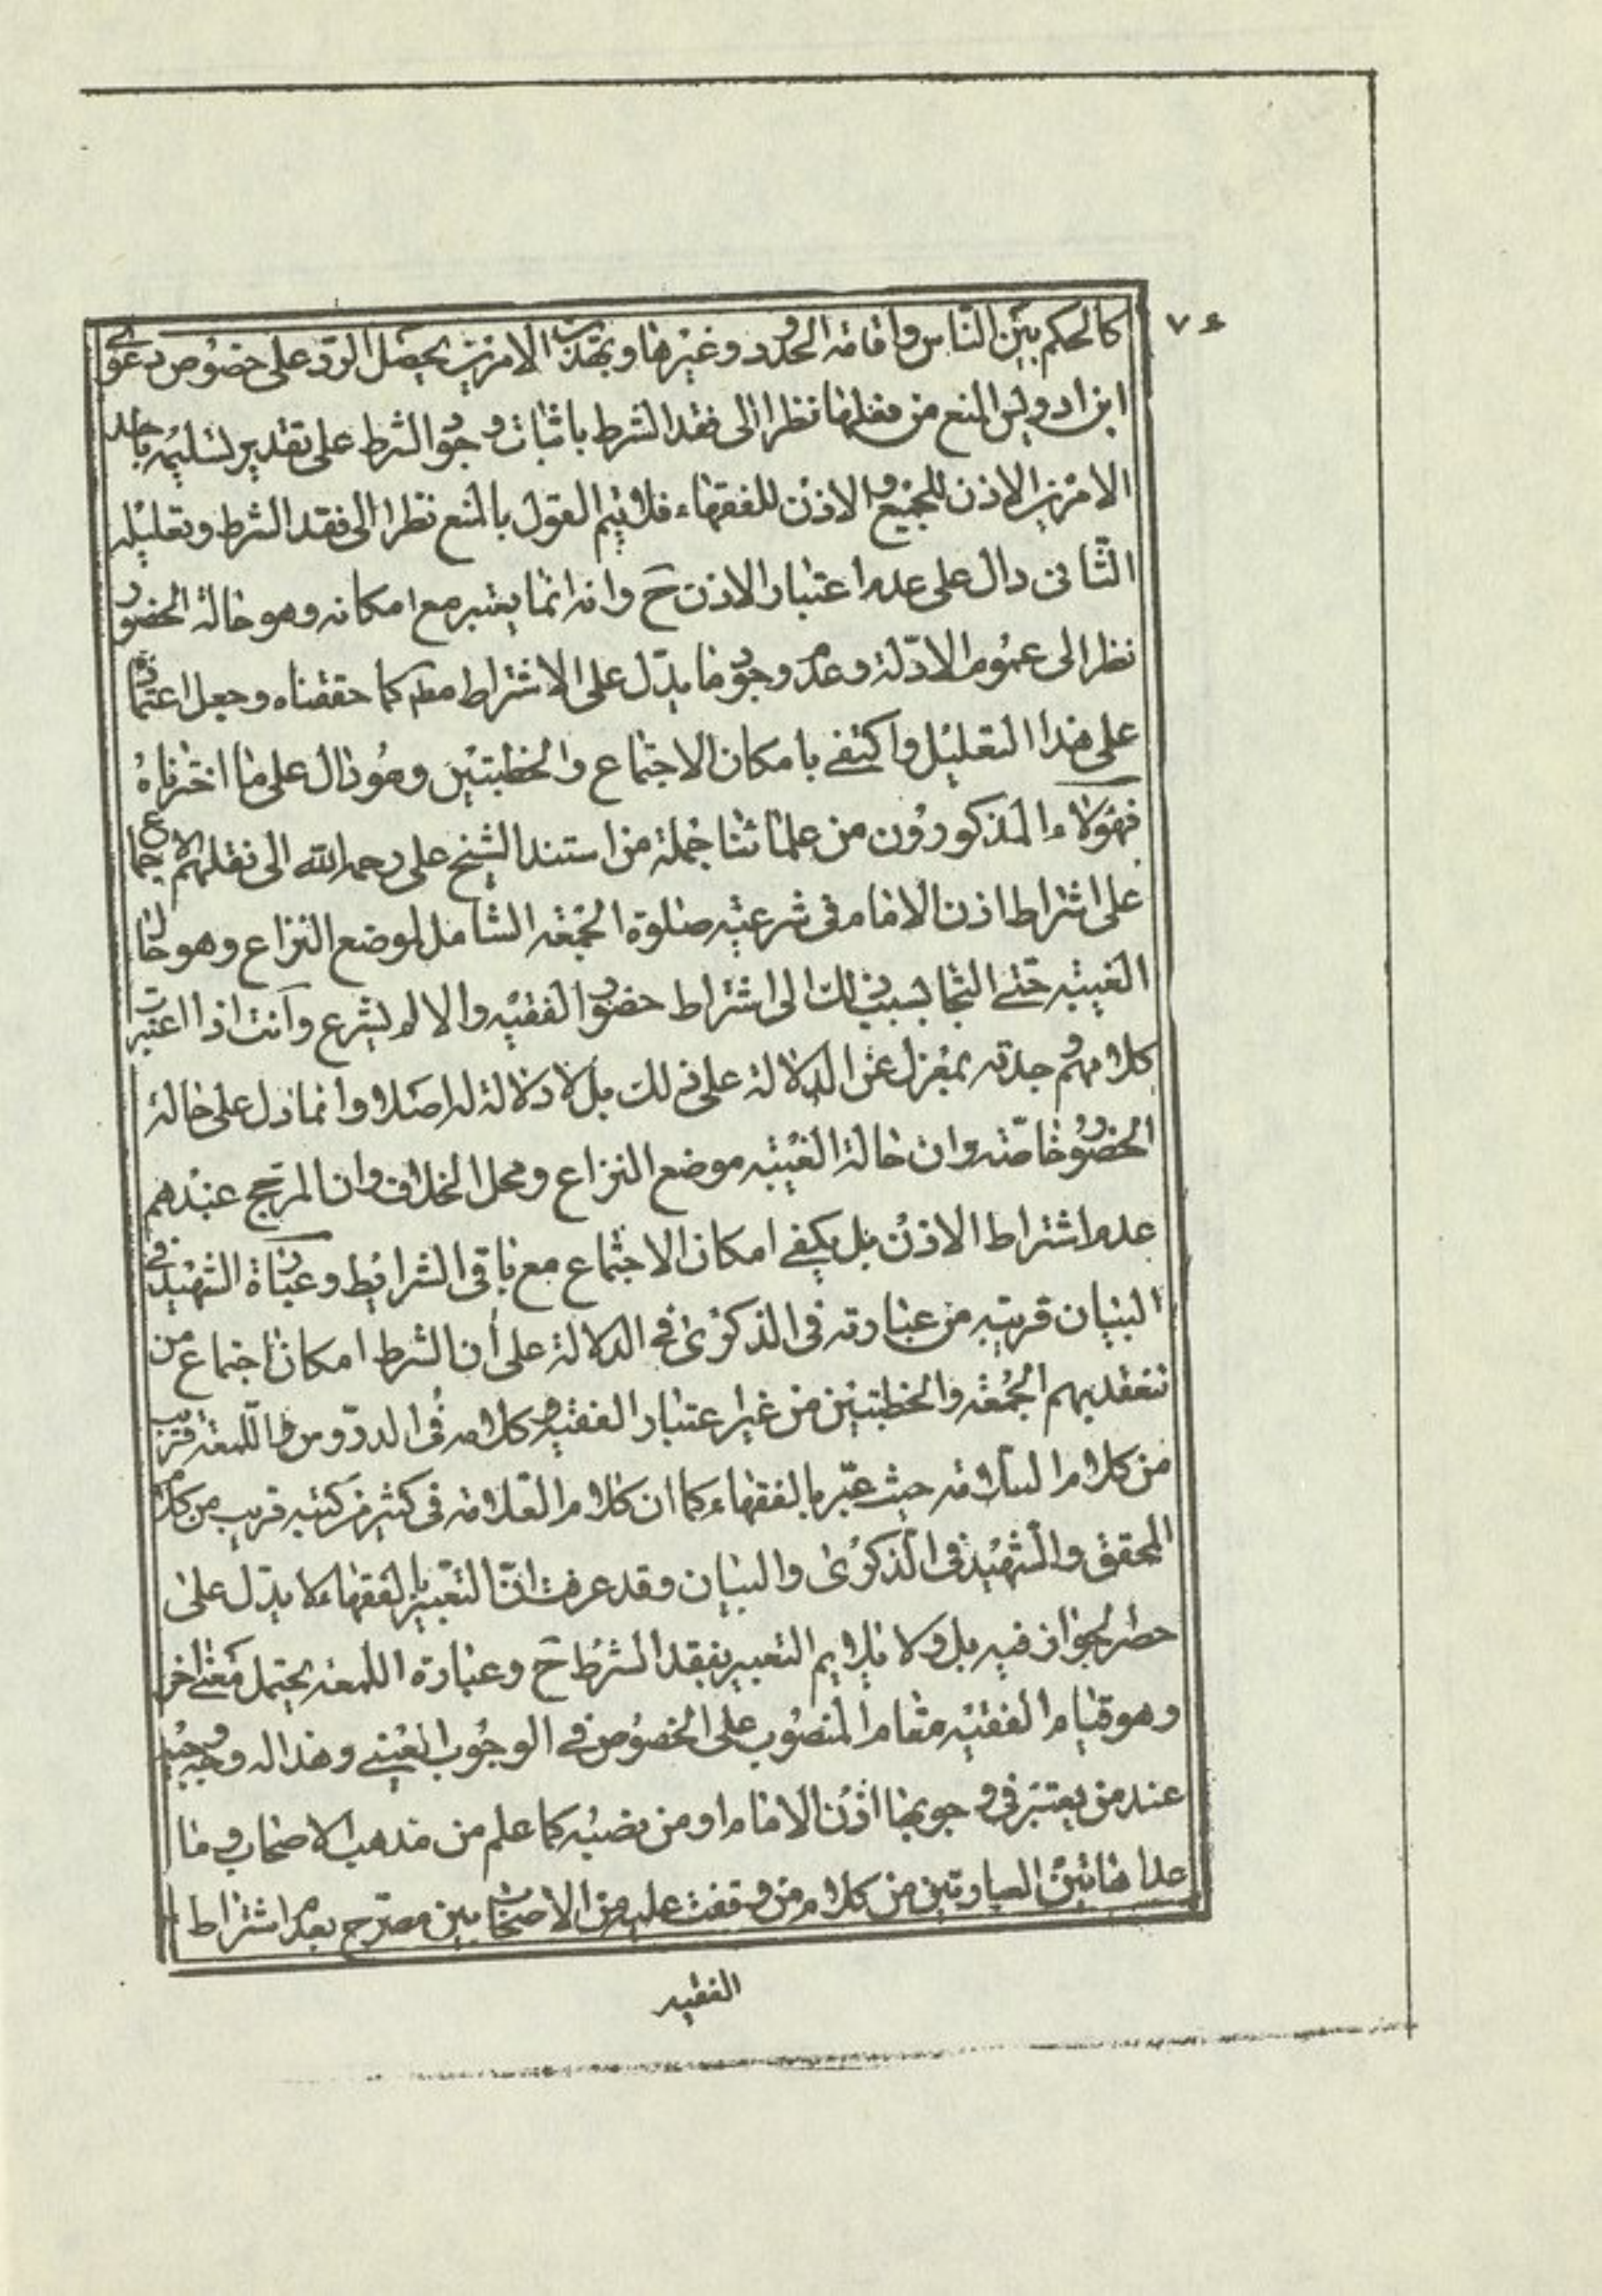 ٧٤
كالحكم بين الناس واقامة الحدود وغيرها وبهذين الامرين يحصل الرد على خصوص دعوى
ابن ادريس المنع من فعلها نظرا الى فقد الشرط باثبات وجود الشرط على تقدير تسليمه باحد
الامرين الاذن للجميع والاذن للفقهاء فلا يتم القول بالمنع نظرا الى فقد الشرط وتعليله
الثانى دال على عدم اعتبار الاذن ح وانه انما يعتبر مع امكانه وهو حالة الحضور
نظرا الى عموم الادلة وعدم وجود ما يدل على الاشتراط مطم كما حققناه وجعل اعتماده
على هذا التعليل واكتفى بامكان الاجتماع والخطبتين وهو دال على ما اخترناه
فهؤلاء المذكورون من علمائنا جملة من استند الشيخ على رحمه الله الى نقلهم الاجماع
على اشتراط اذن الامام فى شرعية صلوة الجمعة الشامل لموضع النزاع وهو حال
الغيبة حتى التجا بسبب ذلك الى اشتراط حضور الفقيه والا لم يشرع وانت اذا اعتبرت
كلامهم وجدته بمعزل عن الدلالة على ذلك بل لا دلالة له اصلا وانما دل على حالة
الحضور خاصة وان حالة الغيبة موضع النزاع ومحل الخلاف وان المرجح عندهم
عدم اشتراط الاذن بل يكفى امكان الاجتماع مع باقى الشرايط وعبارة الشهيد فى
البيان قريبة من عبارته فى الذكرى فى الدلالة على أن الشرط امكان اجتماع من
تنعقد بهم الجمعة والخطبتين من غير اعتبار الفقيه وكلامه فى الدروس واللمعة قريب
من كلام العلامة حيث عبر بالفقهاء كما ان كلام العلامة فى كثير من كتبه قريب من كلام
المحقق والشهيد فى الذكرى والبيان وقد عرفت ان التعبير بالفقهاء لا يدل على
حصر الجواز فيه بل ولا يلايم التعبير بفقد الشرط ح وعبارة اللمعة يحتمل معنى اخر
وهو قيام الفقيه مقام المنصوب على الخصوص فى الوجوب العينى وهذا له وجه وجيه
عند من يعتبر فى وجوبها اذن الامام او من نصبه كما علم من مذهب الاصحاب وما
عدا هاتين العبارتين من كلام من وقفت عليه من الاصحاب بين مصرح بعدم اشتراط
الفقيه